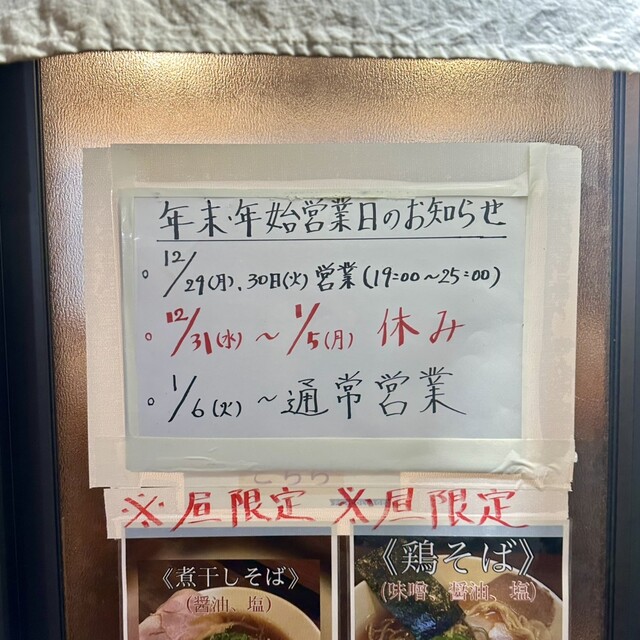 年末・年始営業日のお知らせ
。12/29(月)、30日(火)営業(19:00～25:00)
。12/31(水)～1/5(月) 休み
。1/6(火)～通常営業
こちら
※昼限定 ※昼限定
《煮干しそば》
(醤油、塩)
《鶏そば》
(味噌、醤油、塩)